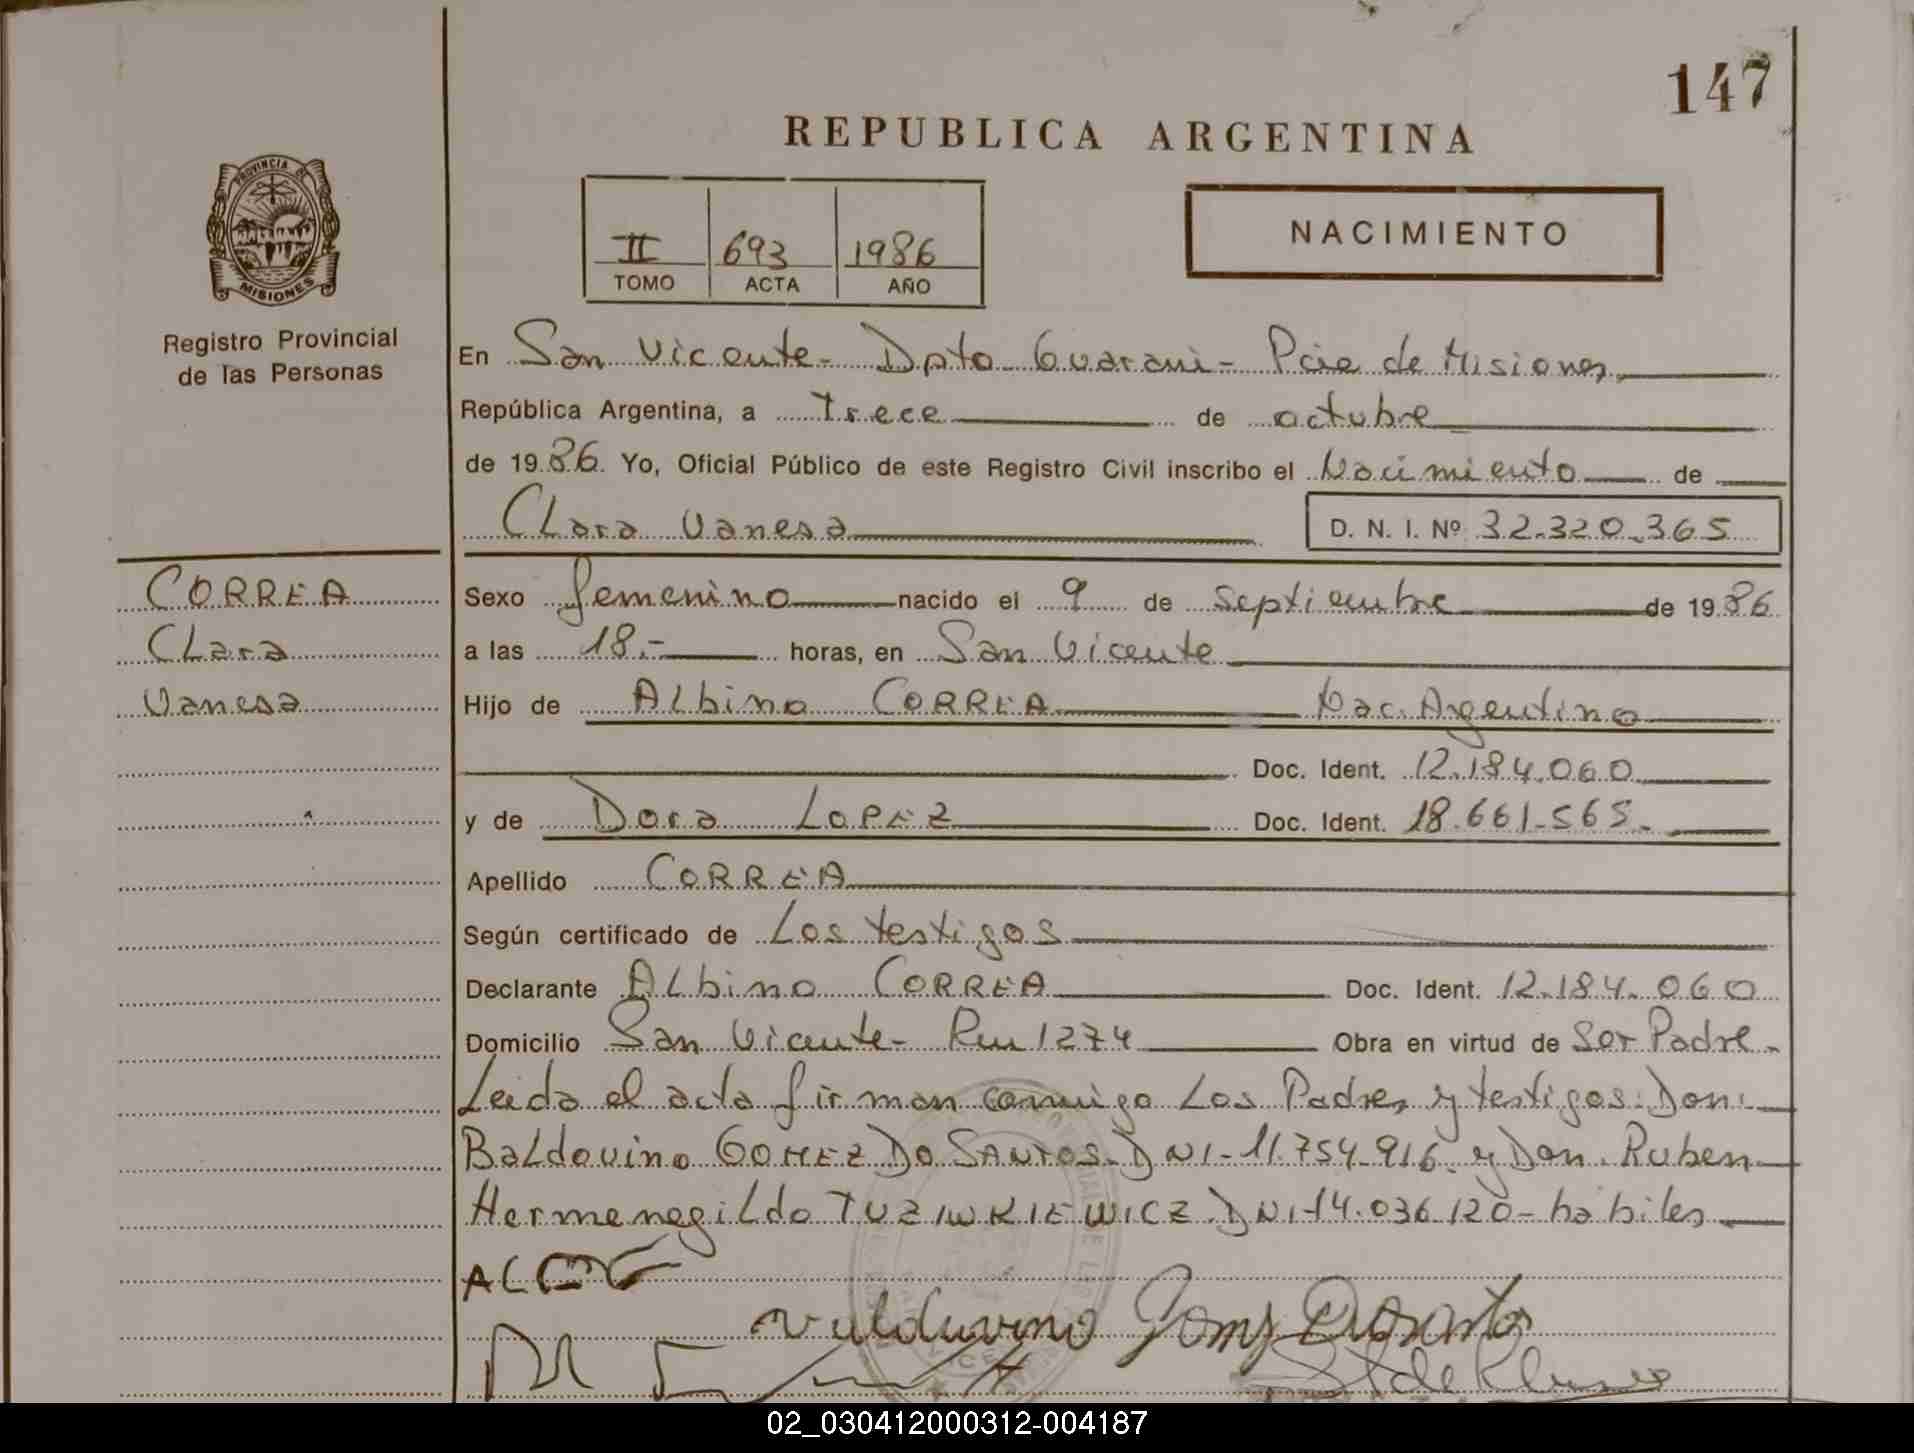 147
REPUBLICA ARGENTINA
PROVINCIA DE
MISIONES
Registro Provincial
de las Personas
II 693 1986
TOMO ACTA AÑO
NACIMIENTO
En San Vicente - Dpto Guarani - Pcia de Misiones
República Argentina, a Trece de octubre
de 1986. Yo, Oficial Público de este Registro Civil inscribo el Nacimiento de
Clara Vanesa D. N. I. Nº 32.320.365
CORREA
Clara
Vanesa
Sexo femenino nacido el 9 de septiembre de 1986
a las 18.- horas, en San Vicente
Hijo de Albino CORREA Nac. Argentino
Doc. Ident. 12.184.060
y de Dora LOPEZ Doc. Ident. 18.661.565.-
Apellido CORREA
Según certificado de Los testigos
Declarante Albino CORREA Doc. Ident. 12.184.060
Domicilio San Vicente - Rn 1274 Obra en virtud de Ser Padre.
Leida el acta firman conmigo Los Padres y testigos: Don:
Baldovino GOMEZ DO SANTOS. DNI - 11.754.916. y Don. Ruben
Hermenegildo TUZIWKIEWICZ. DNI-14.036.120 - habiles
valduvino Gomz
02_030412000312-004187